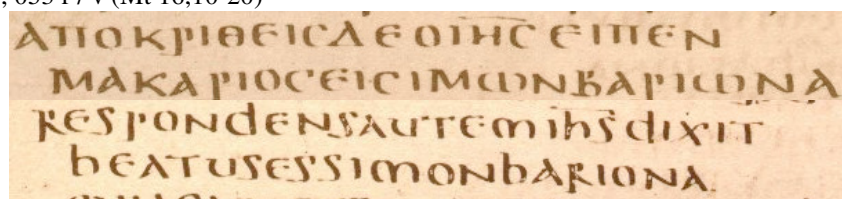 (Mt 16,16-20)
ΑΠΟΚΡΙΘΕΙϹΔΕΟΙΗϹ̅ΕΙΠΕΝ
ΜΑΚΑΡΙΟϹΕΙϹΙΜΩΝΒΑΡΙΩΝΑ
RESPONDENSAUTEMIHS̅DIXIT
BEATUSESSIMONBARIONA